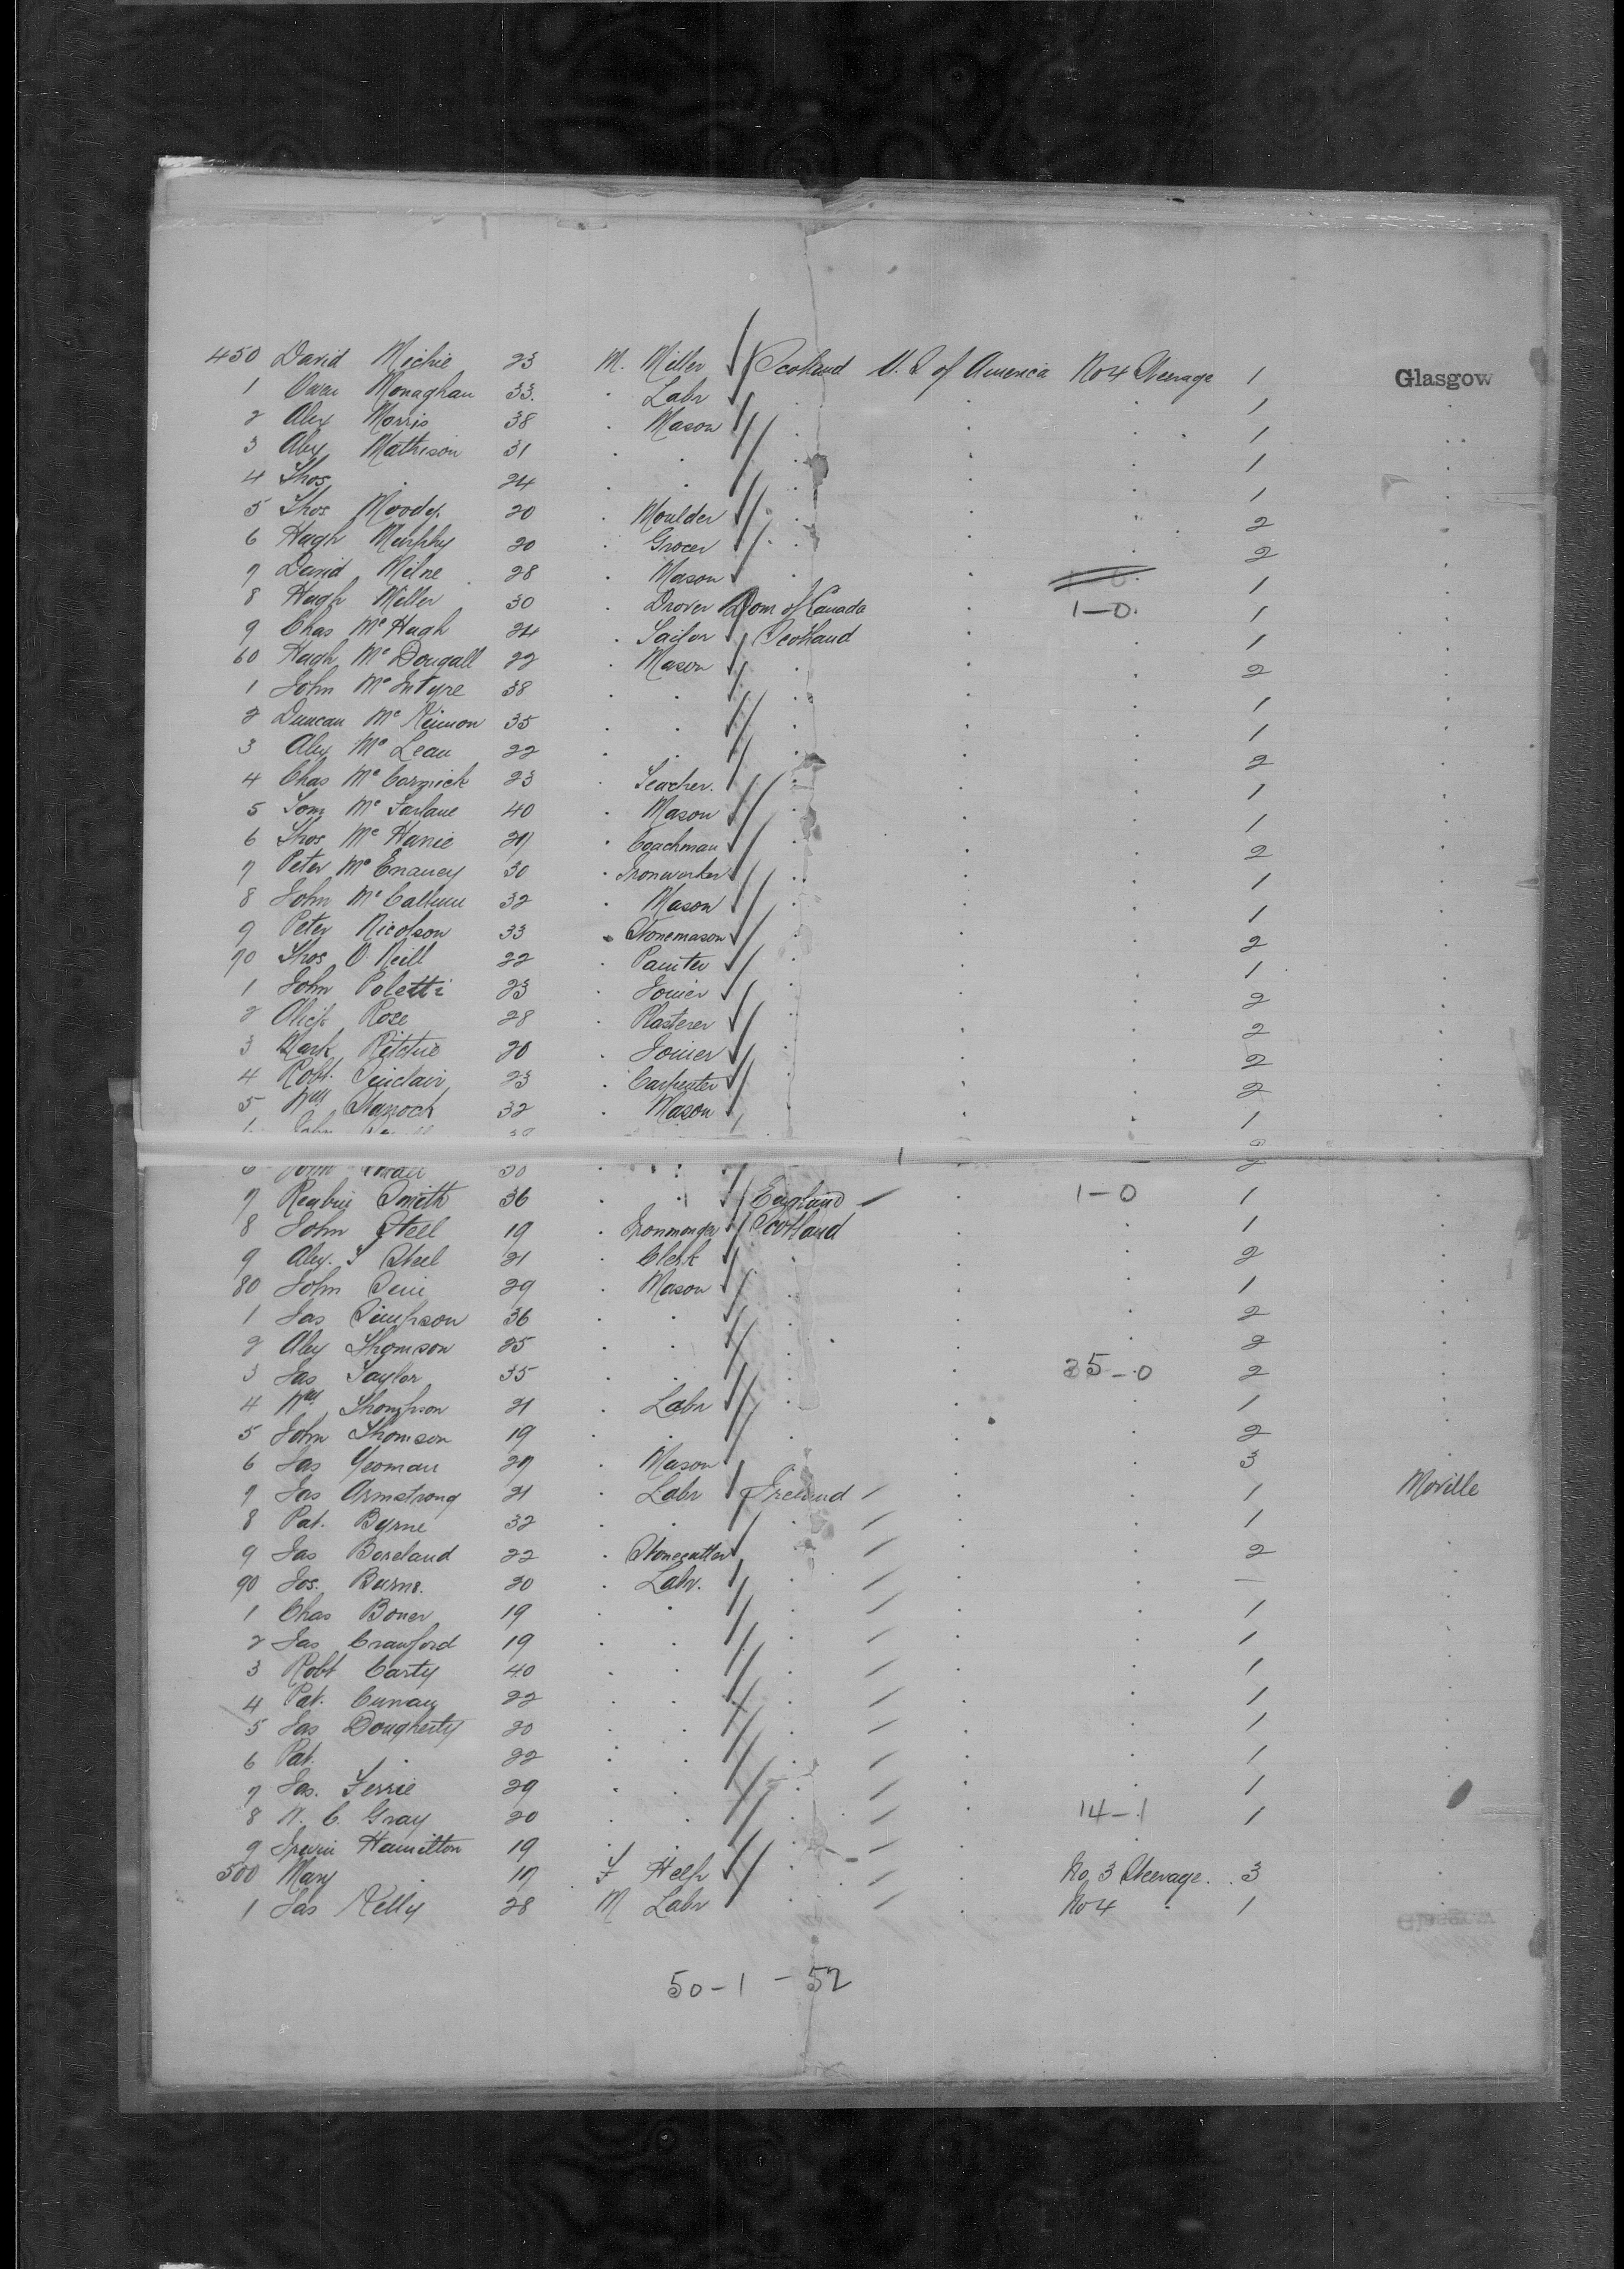 450 David Michie 23 M. Miller Scotland U.S of America No 4 Steerage 1 Glasgow
1 Owen Monaghan 33. Labr 1
2 Alex Morris 38 Mason 1
3 Alex Mathison 31 1
4 Thos 24 1
5 Thos Moody 20 Moulder 2
6 Hugh Murphy 20 Grocer 2
7 David Milne 28 Mason 1
8 Hugh Miller 30 Drover Dom of Canada 1-0. 1
9 Chas McHugh 24 Scotland 1
60 Hugh McDougall 22 Mason 2
1 John McIntyre 38 1
2 Duncan McKinnon 35 1
3 Alex McLean 22 2
4 Chas McCormick 23 Teacher. 1
5 Tom McFarlane 40 Mason 1
6 Thos Mc 27 Coachman 2
7 Peter McEnaney 30 Ironworker 1
8 John McCallum 32 Mason 1
9 Peter Nicolson 33 Stonemason 2
70 Thos O'Neill 22 Painter 1
1 John Poletti 23 Joiner 2
2 Rose 28 Plasterer 2
3 Mark Ritchie 20 Joiner 2
4 Robt. Sinclair 23 Carpenter 2
5 Wm 32 Mason 1
6 John Small 30 2
7 Smith 36 England 1-0 1
8 John Steel 19 Ironmonger Scotland 1
9 Alex. T Steel 21 Clerk 2
80 John 29 Mason 1
1 Jas Simpson 36 2
2 Alex Thomson 25 2
3 Jas Taylor 35 35-0 2
4 Wm Thompson 21 Labr 1
5 John Thomson 19 2
6 Jas Yeoman 27 Mason 3
7 Jas Armstrong 21 Labr Ireland 1 Moville
8 Pat. Byrne 32 1
9 Jas Boreland 22 Stonecutter 2
90 Jos. Burns. 20 Labr. —
1 Chas Boner 19 1
2 Jas Crawford 19 1
3 Robt Carty 40 1
4 Pat. 22 1
5 Jas Dougherty 20 1
6 Pat. 22 1
7 Jas. Ferrie 29 1
8 W. C. Gray 20 14-1 1
9 Irwin Hamilton 19
500 Mary 17 F Help No 3 Steerage. 3
1 Jas Kelly 28 M Labr No 4 1
50-1-52